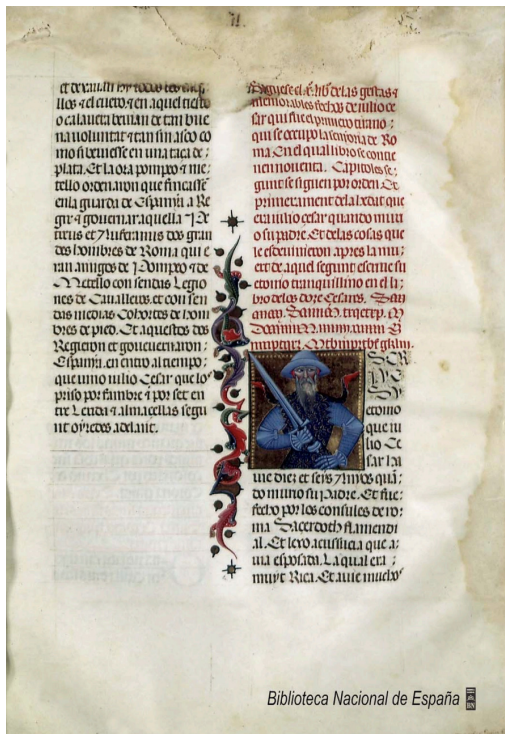 llos & el cuero & en aquel tiesto
o calauera beuian de tan bue
na voluntat & tan sin asco co
mo si beuiesse en una taça de
plata. Et la ora pompeo & me
tello ordenaron que fincasse
en la guarda de Espanya a Re
gir & gouernar aquella
dos hombres de Roma que e
ran amigos de Pompeo & de
Metello con sendas Legio
nes de Caualleros. et con sen
das medias Cohortes de hom
bres de pied. Et aquestos dos
Regieron et gouernaron
Espanya. en entro al tiempo
que uino iulio Cesar que los
priso por fambre & por set en
tre Lerida & almacellas segu
nt oyredes adelant.
de las gestas &
memorables fechos de iulio ce
sar qui fue el primero
qui se occupo la senyoria de Ro
ma. En el qual libro se contie
nen nouenta. Capitoles se
gunt se siguen por orden. Et
primerament de la hedat que
era iulio cesar quando murio
o su padre. Et de las cosas que
le esdeuinieron apres la mu
ert de aquel segunt escriue su
etonio tranquillino en el li
bro de los dotze Cesares.
etonio
que iu
lio Ce
sar ha
uie diez et seys anyos quan
do murio su padre. Et fue
fecho por los consules de ro
ma Sacerdoth flamendi
al. Et lexo acussucia que a
uia esposada. La qual era
muyt Rica. Et auie muchos
Biblioteca Nacional de España